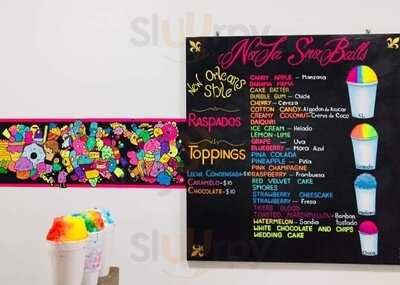 NoLa Snoballs
New Orleans
Style
RASPADOS
TOPPINGS
LECHE CONDENSADA-$10
CARAMELO-$10
CHOCOLATE-$10
CANDY APPLE - Manzana
BANANA MAMA
CAKE BATTER
BUBBLE GUM - Chicle
CHERRY - Cereza
COTTON CANDY-Algodon de Azucar
CREAMY COCONUT-Crema de Coco
DAIQUIRI
ICE CREAM - Helado
LEMON-LIME
GRAPE - Uva
BLUEBERRY - Mora Azul
PINA COLADA
PINEAPPLE - Piña
PINK CHAMPAGNE
RASPBERRY - Frambuesa
RED VELVET CAKE
SMORES
STRAWBERRY CHEESECAKE
STRAWBERRY - Fresa
TIGERS BLOOD
TOASTED MARSHMALLOW-Bombon Tostado
WATERMELON - Sandia
WHITE CHOCOLATE AND CHIPS
WEDDING CAKE
Chica
slurrpy